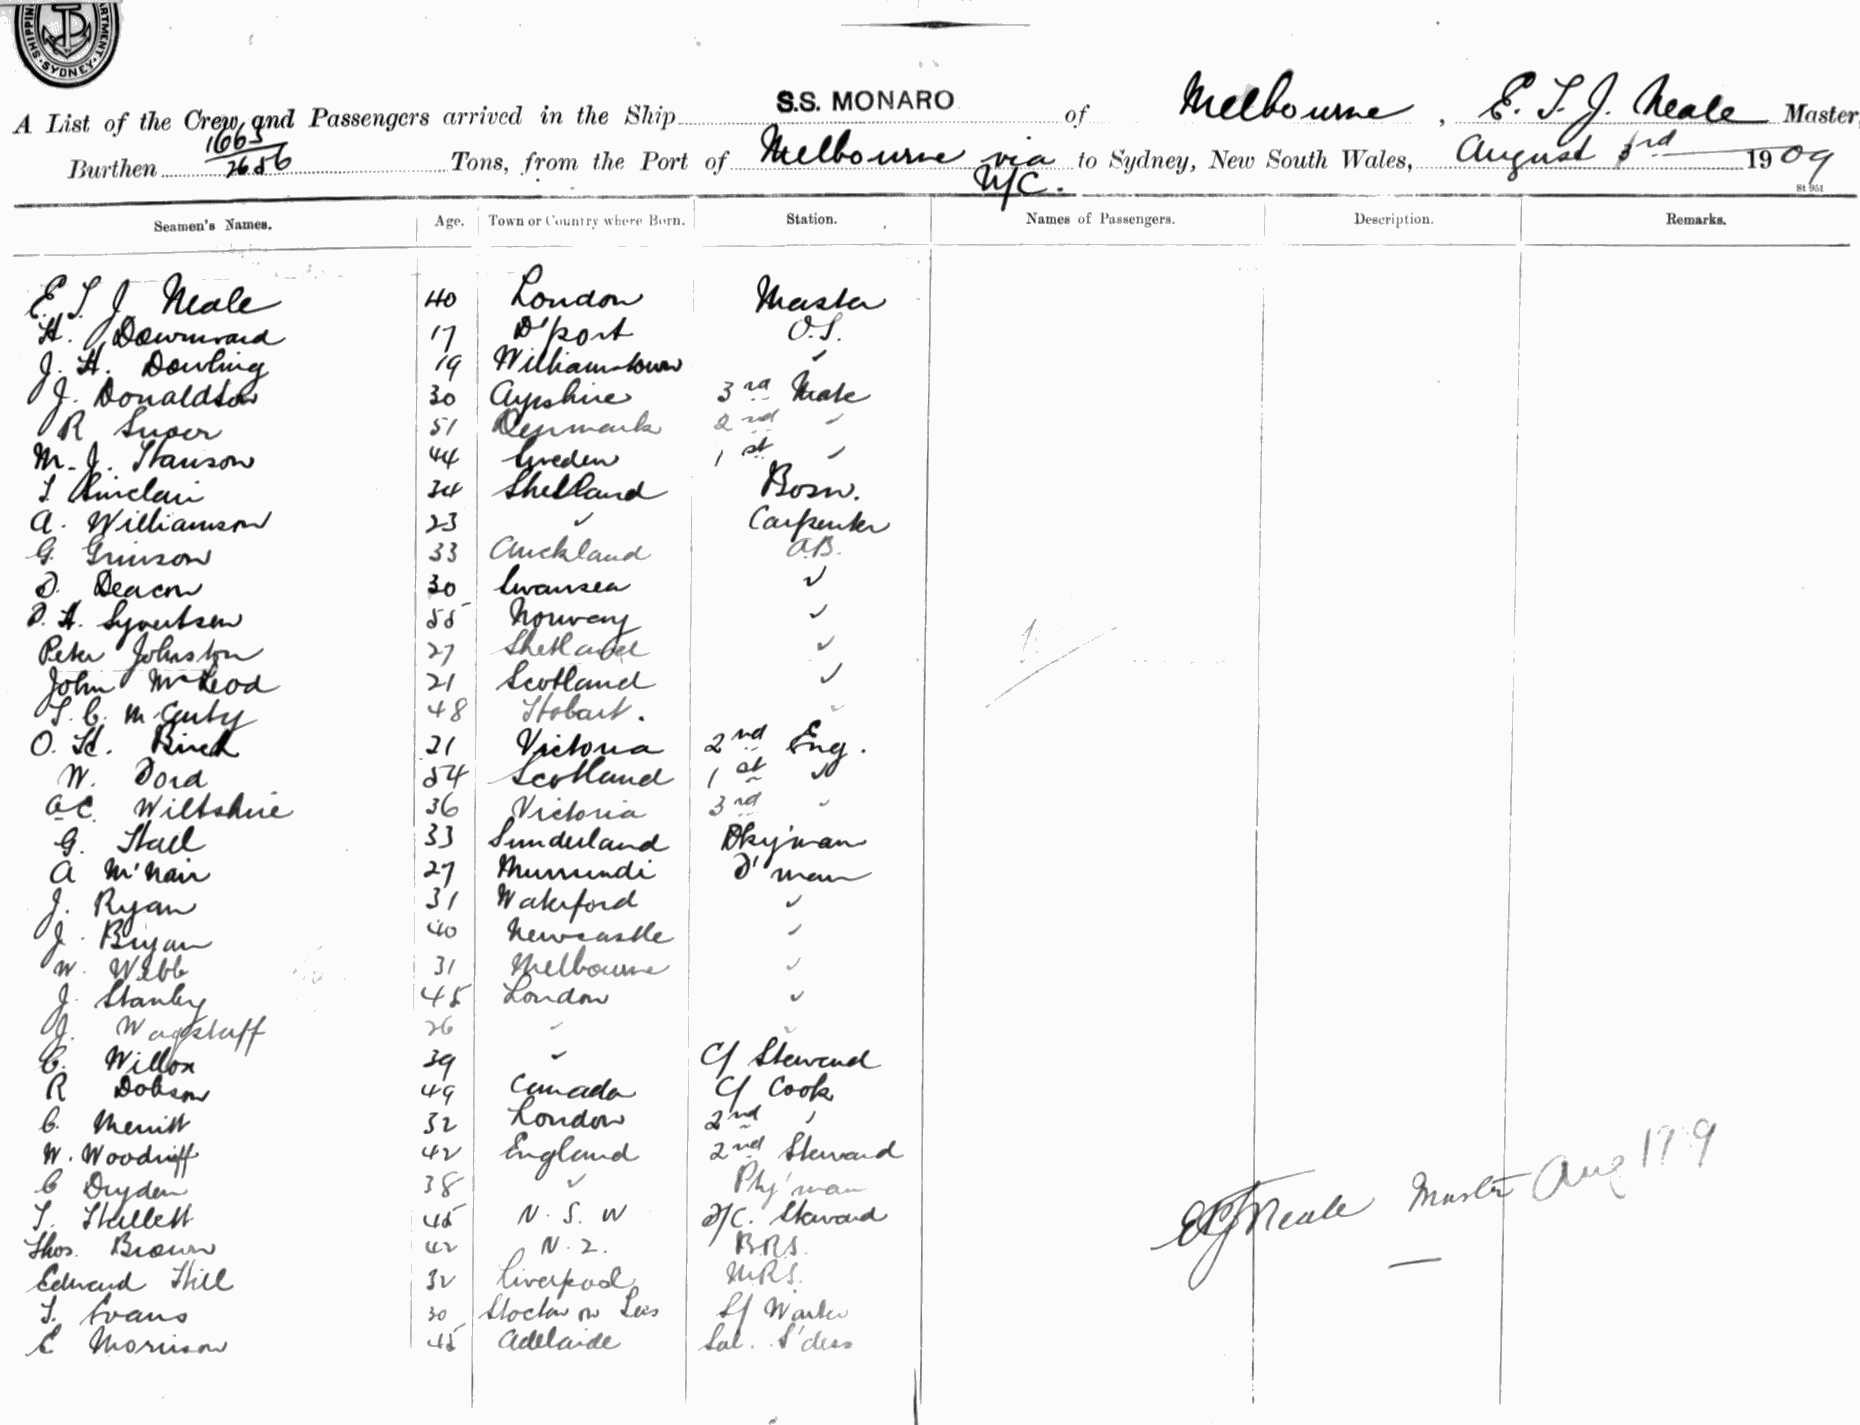 SHIPPING DEPARTMENT SYDNEY
A List of the Crew and Passengers arrived in the Ship S.S. MONARO of Melbourne, E. T. J. Neale Master,
Burthen 1663 2656 Tons, from the Port of Melbourne via N/C. to Sydney, New South Wales, August 3rd 1909
St 951
Seamen's Names. Age. Town or Country where Born. Station. Names of Passengers. Description. Remarks.
E. T. J Neale 40 London Master
H. Downward 17 D'port O.S.
J. H. Dowling 19 Williamstown "
J. Donaldson 30 Ayrshire 3rd Mate
R 51 Denmark 2nd "
M. J. Hanson 44 Sweden 1st "
T Sinclair 34 Shetland Bosn.
A. Williamson 23 " Carpenter
G. Grinson 33 Auckland A.B.
D. Deacon 30 Swansea "
O. H. Syvertsen 55 Norway "
Peter Johnston 27 Shetland "
John McLeod 21 Scotland "
T. C. McCarty 48 Hobart. "
O. H. Birch 21 Victoria 2nd Eng.
W. Ford 54 Scotland 1st "
A C Wiltshire 36 Victoria 3rd "
G. Hall 33 Sunderland Dky'man
A McNair 27 Murrundi F'man
J. Ryan 31 Waterford "
J. Bryan 40 Newcastle "
W. Webb 31 Melbourne "
J. Stanley 45 London "
J. Wagstaff 26 " "
C. Willox 39 " C/ Steward
R Dobson 49 Canada C/ Cook
C. Merritt 32 London 2nd "
W. Woodriff 42 England 2nd Steward
C Dryden 38 " Pty'man
T. Hallett 45 N. S. W F/C. Steward
Thos. Brown 42 N. Z. B.R.S.
Edward Hill 32 Liverpool M.R.S.
T. Evans 30 Stockton on Tees S/ Waiter
E Morrison 45 Adelaide Sal. S'dess
ETJ Neale Master Aug